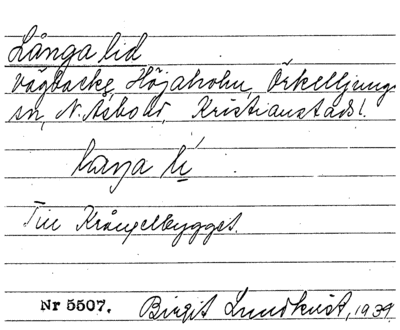 Långa lid
vägbacke, Höjaholm, Örkelljunga
sn, N. Åsbo hd, Kristianstads l.
Till Krångelbygget.
Nr 5507. Birgit Lundkvist, 1939